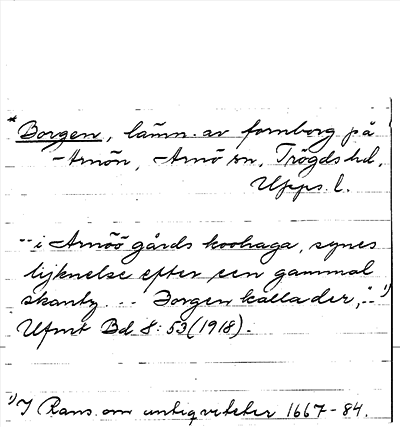 * Borgen, lämn. av fornborg på
Arnön, Arnö sn, Trögds hd.
Upps. l.
-- i Arnöö gårds koohaga, synes
lijknelse efter een gammal
skantz ... Borgen kallader, .. 1)
Ufmt Bd 8: 53 (1918).
1) I Rans. om antiqviteter 1667-84.